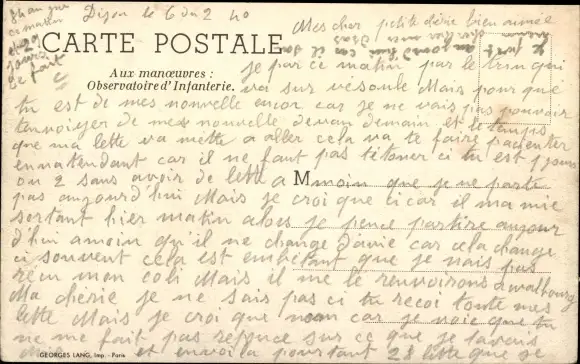 Dijon le 6 du 2 40
Mes cher petite chérie bien aimée
CARTE POSTALE
Aux manœuvres :
Observatoire d'Infanterie.
je par ce matin par le train qui
va sur vesoule Mais pour que
tu est de mes nouvelle encor car je ne vais pas pouvoir
tenvoiyer de mes nouvelle devan demain et le temps
que ma lette va mette a aller cela va te faire pacienter
en natendant car il ne faut pas tétoner ci tu est 1 jours
ou 2 sans avoir de lette a M moin que je ne parte
pas aujourd'hui Mais je croi que ci car il ma mie
sortant hier matin alors je pence partire aujour
d'hui amoin qu'il ne change d'avie car cela change
ci souvent cela est embetant que je nais pas
recu mon coli Mais il me le renvoirons a walbourg
Ma chérie je ne sais pas ci tu recoi toute mes
lette Mais je croi que non car je voie que tu
ne me fait pas reponce sur ce que je tavens
et envoi la pourtant 28 lette que je
GEORGES LANG, Imp. - Paris